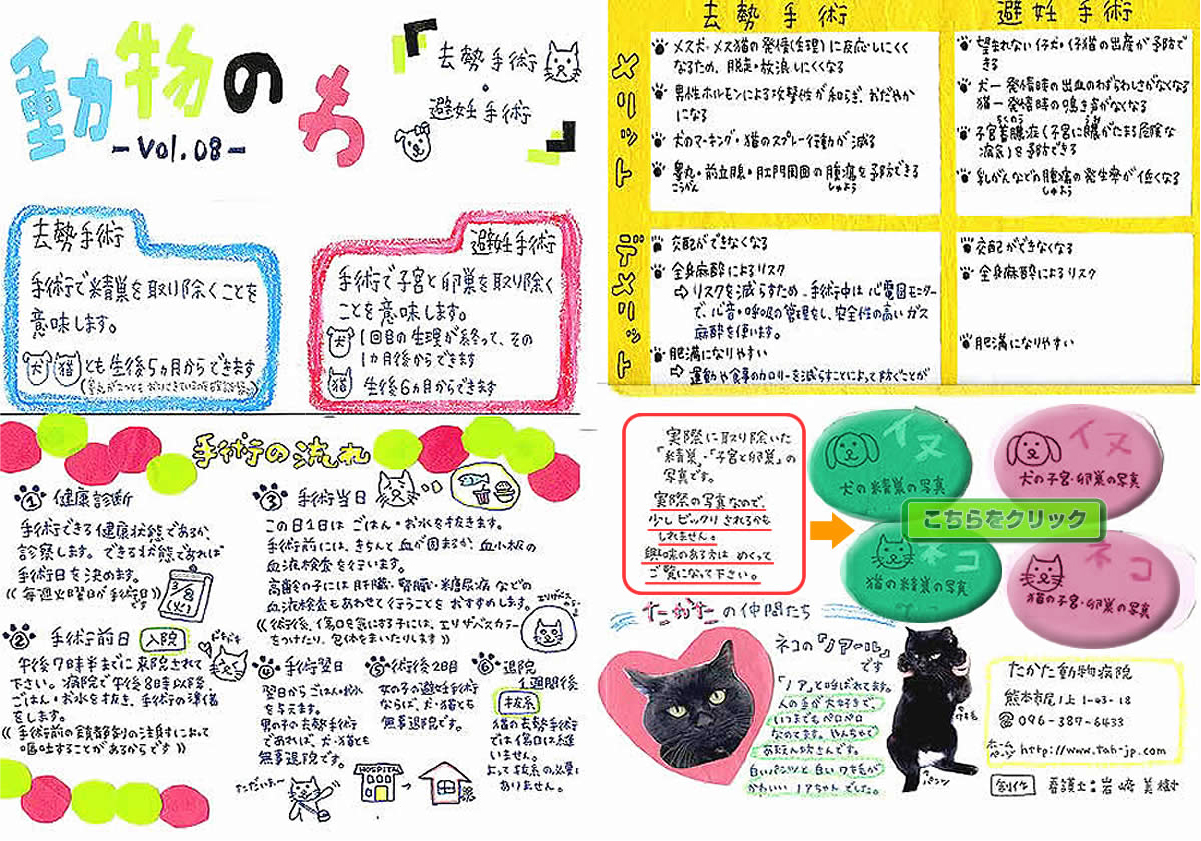 動物のち
-Vol.08-
去勢手術
・
避妊手術
去勢手術
手術で精巣を取り除くことを
意味します。
犬 猫 とも生後5ヵ月からできます
避妊手術
手術で子宮と卵巣を取り除く
ことを意味します。
犬 1回目の生理が終って、その
1ヵ月後からできます
猫 生後6ヵ月からできます
去勢手術
避妊手術
メリット
メス犬・メス猫の発情(生理)に反応しにくく
なるため、脱走・放浪しにくくなる
男性ホルモンによる攻撃性が和らぎ、おだやか
になる
犬のマーキング・猫のスプレー行動が減る
睾丸・前立腺・肛門周囲の腫瘍を予防できる
こうがん
しゅよう
望まれない仔犬・仔猫の出産が予防で
きる
犬－発情時の出血のわずらわしさがなくなる
猫－発情時の鳴き声がなくなる
子宮蓄膿症(子宮に膿がたまる危険な
病気)を予防できる
乳がんなどの腫瘍の発生率が低くなる
しゅよう
デメリット
交配ができなくなる
全身麻酔によるリスク
⇨リスクを減らすため、手術中は心電図モニター
で、心音・呼吸の管理をし、安全性の高いガス
麻酔を使います。
肥満になりやすい
⇨運動や食事のカロリーを減らすことによって防ぐことが
交配ができなくなる
全身麻酔によるリスク
肥満になりやすい
手術の流れ
① 健康診断
手術できる健康状態であるか、
診察します。できる状態であれば
手術日を決めます。
((毎週火曜日が手術日です))
3/8(火)
② 手術前日 入院
午後7時半までに来院されて
下さい。病院で午後8時以降
ごはん・お水を抜き、手術の準備
をします。
((手術前の鎮静剤の注射によって
嘔吐することがあるからです))
ドキドキ
③ 手術当日
この日1日は ごはん・お水を抜きます。
手術前には、きちんと血が固まるか、血小板の
血液検査を行います。
高齢の子には肝臓・腎臓・糖尿病などの
血液検査もあわせて行うことをおすすめします。
((術後、傷口を気にする子には、エリザベスカラー
をつけたり、包帯をまいたりします))
エリザベス
④ 手術翌日
翌日からごはん・お水
を与えます。
男の子の去勢手術
であれば、犬・猫とも
無事退院です。
⑤ 術後2日目
女の子の避妊手術
ならば、犬・猫とも
無事退院です。
⑥ 退院
1週間後
抜糸
猫の去勢手術
では傷口は縫
いません。
よって抜糸の必要は
ありません。
ただいまー
HOSPITAL
実際に取り除いた
「精巣」・「子宮と卵巣」の
写真です。
実際の写真なので、
少しビックリされるかも
しれません。
興味のある方は めくって
ご覧になって下さい。
イヌ
犬の精巣の写真
イヌ
犬の子宮・卵巣の写真
こちらをクリック
ネコ
猫の精巣の写真
ネコ
猫の子宮・卵巣の写真
たかたの仲間たち
ネコの『ノアール』
です
「ノア」と呼ばれてます。
人の舌が大好きで、
いつまでもペロペロ
なめてます。やんちゃで
あまえん坊さんです。
白いパンツと白いワキ毛が
かわいい ノアちゃんでした。
パンツ
たかた動物病院
熊本市尾ノ上1-03-18
☎096-389-6433
ホームページ http://www.tah-jp.com
制作 看護士:岩崎美樹